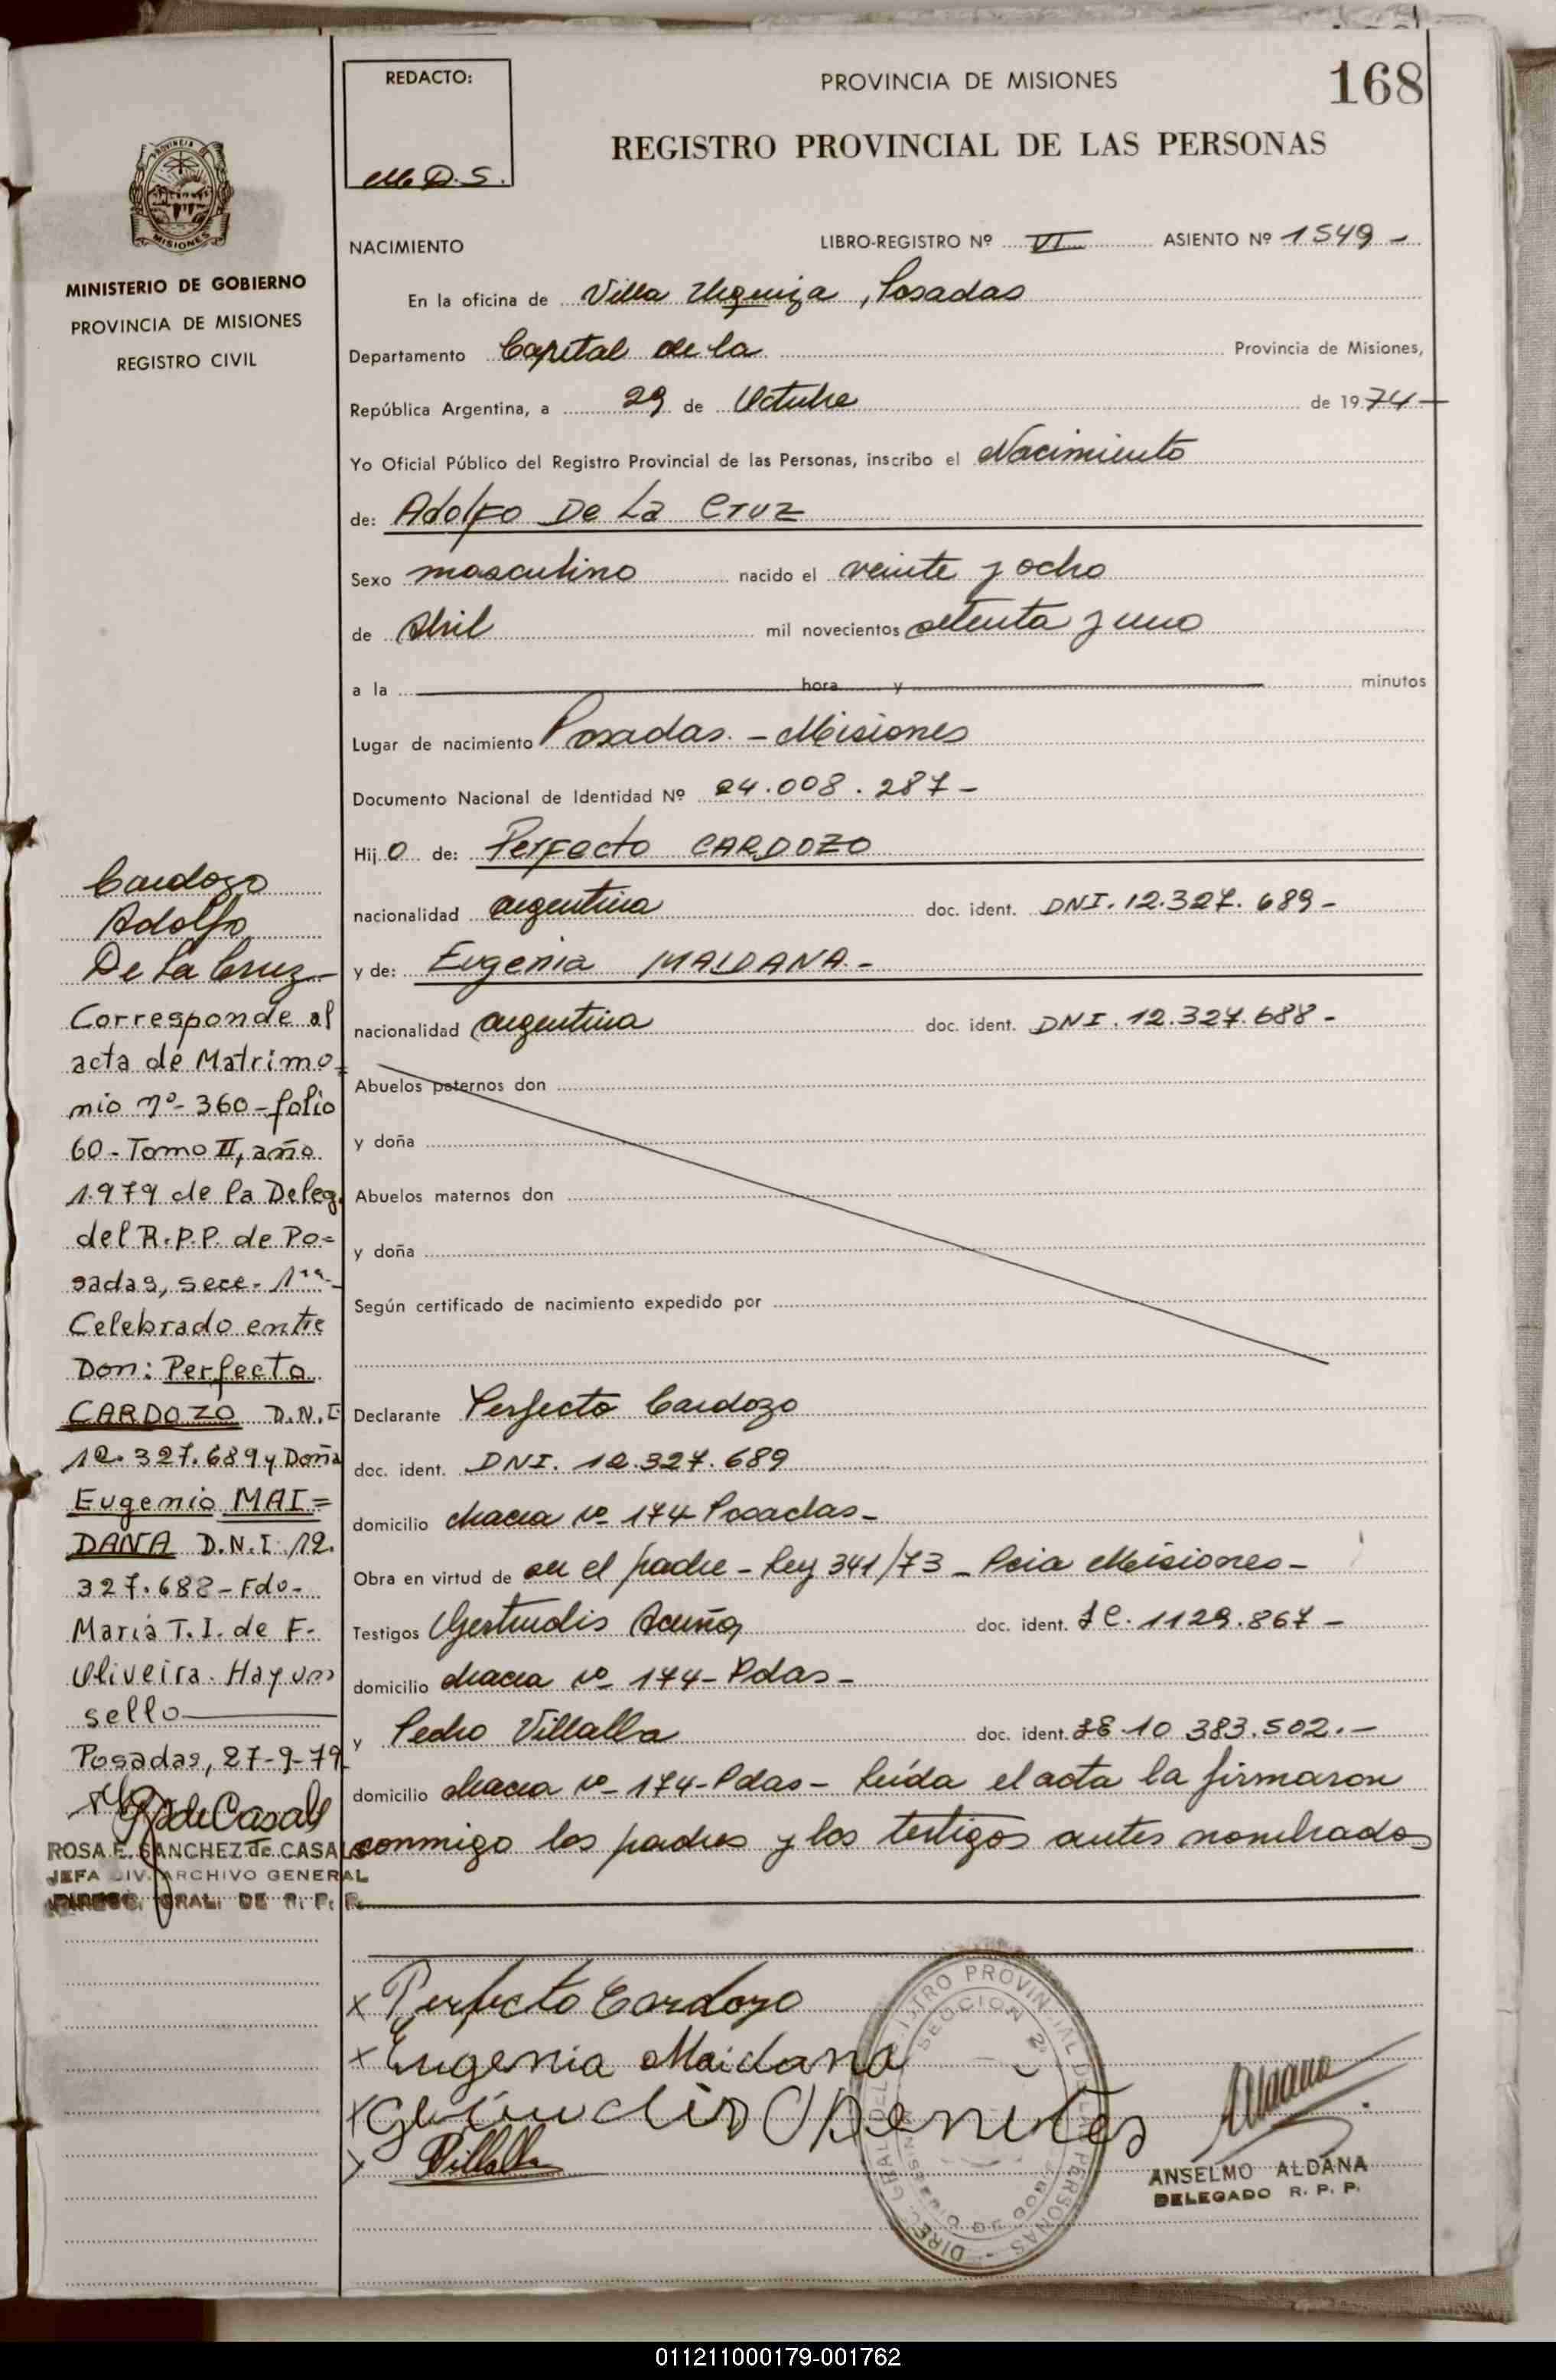 168
REDACTO:
M. D. S.
PROVINCIA DE MISIONES
REGISTRO PROVINCIAL DE LAS PERSONAS
PROVINCIA DE
MISIONES
MINISTERIO DE GOBIERNO
PROVINCIA DE MISIONES
REGISTRO CIVIL
NACIMIENTO
LIBRO-REGISTRO Nº VI ASIENTO Nº 1549 -
En la oficina de Villa Urquiza, Posadas
Departamento Capital de la Provincia de Misiones,
República Argentina, a 29 de Octubre de 1974 -
Yo Oficial Público del Registro Provincial de las Personas, inscribo el Nacimiento
de: Adolfo De La Cruz
Sexo masculino nacido el veinte y ocho
de Abril mil novecientos setenta y uno
a la hora y minutos
Lugar de nacimiento Posadas. - Misiones
Documento Nacional de Identidad Nº 24.008.287 -
Hijo de: Perfecto CARDOZO
nacionalidad argentina doc. ident. DNI. 12.327.689 -
y de: Eugenia MAIDANA -
nacionalidad argentina doc. ident. DNI. 12.327.688 -
Abuelos paternos don
y doña
Abuelos maternos don
y doña
Según certificado de nacimiento expedido por
Declarante Perfecto Cardozo
doc. ident. DNI. 12.327.689
domicilio chacra nº 174 Posadas -
Obra en virtud de ser el padre - Ley 341/73 - Pcia Misiones -
Testigos Gertrudis Acuña doc. ident. LC. 1129.867 -
domicilio chacra nº 174 - Pdas -
y Pedro Villalba doc. ident. 10.383.502. -
domicilio chacra nº 174 - Pdas - leída el acta la firmaron
conmigo los padres y los testigos antes nombrados
Cardozo
Adolfo
De La Cruz -
Corresponde al
acta de Matrimo=
nio nº 360 - folio
60 - Tomo II, año
1.979 de la Deleg.
del R.P.P. de Po=
sadas, secc. 1ra -
Celebrado entre
Don: Perfecto
CARDOZO D.N.I
12.327.689 y Doña
Eugenio MAI=
DANA D.N.I. 12.
327.688 - Fdo -
María T. I. de F.
Oliveira. Hay un
sello
Posadas, 27-9-79
R S de Casals
ROSA E. SANCHEZ de CASALS
JEFA DIV. ARCHIVO GENERAL
DIRECC. GRAL. DE R. P. P.
x Perfecto Cardozo
x Eugenia Maidana
x Benites
x Villalba
DIREC. GRAL. DEL REGISTRO PROVINCIAL DE LAS PERSONAS -
SECCION 2ª
Aldana
ANSELMO ALDANA
DELEGADO R. P. P.
011211000179-001762